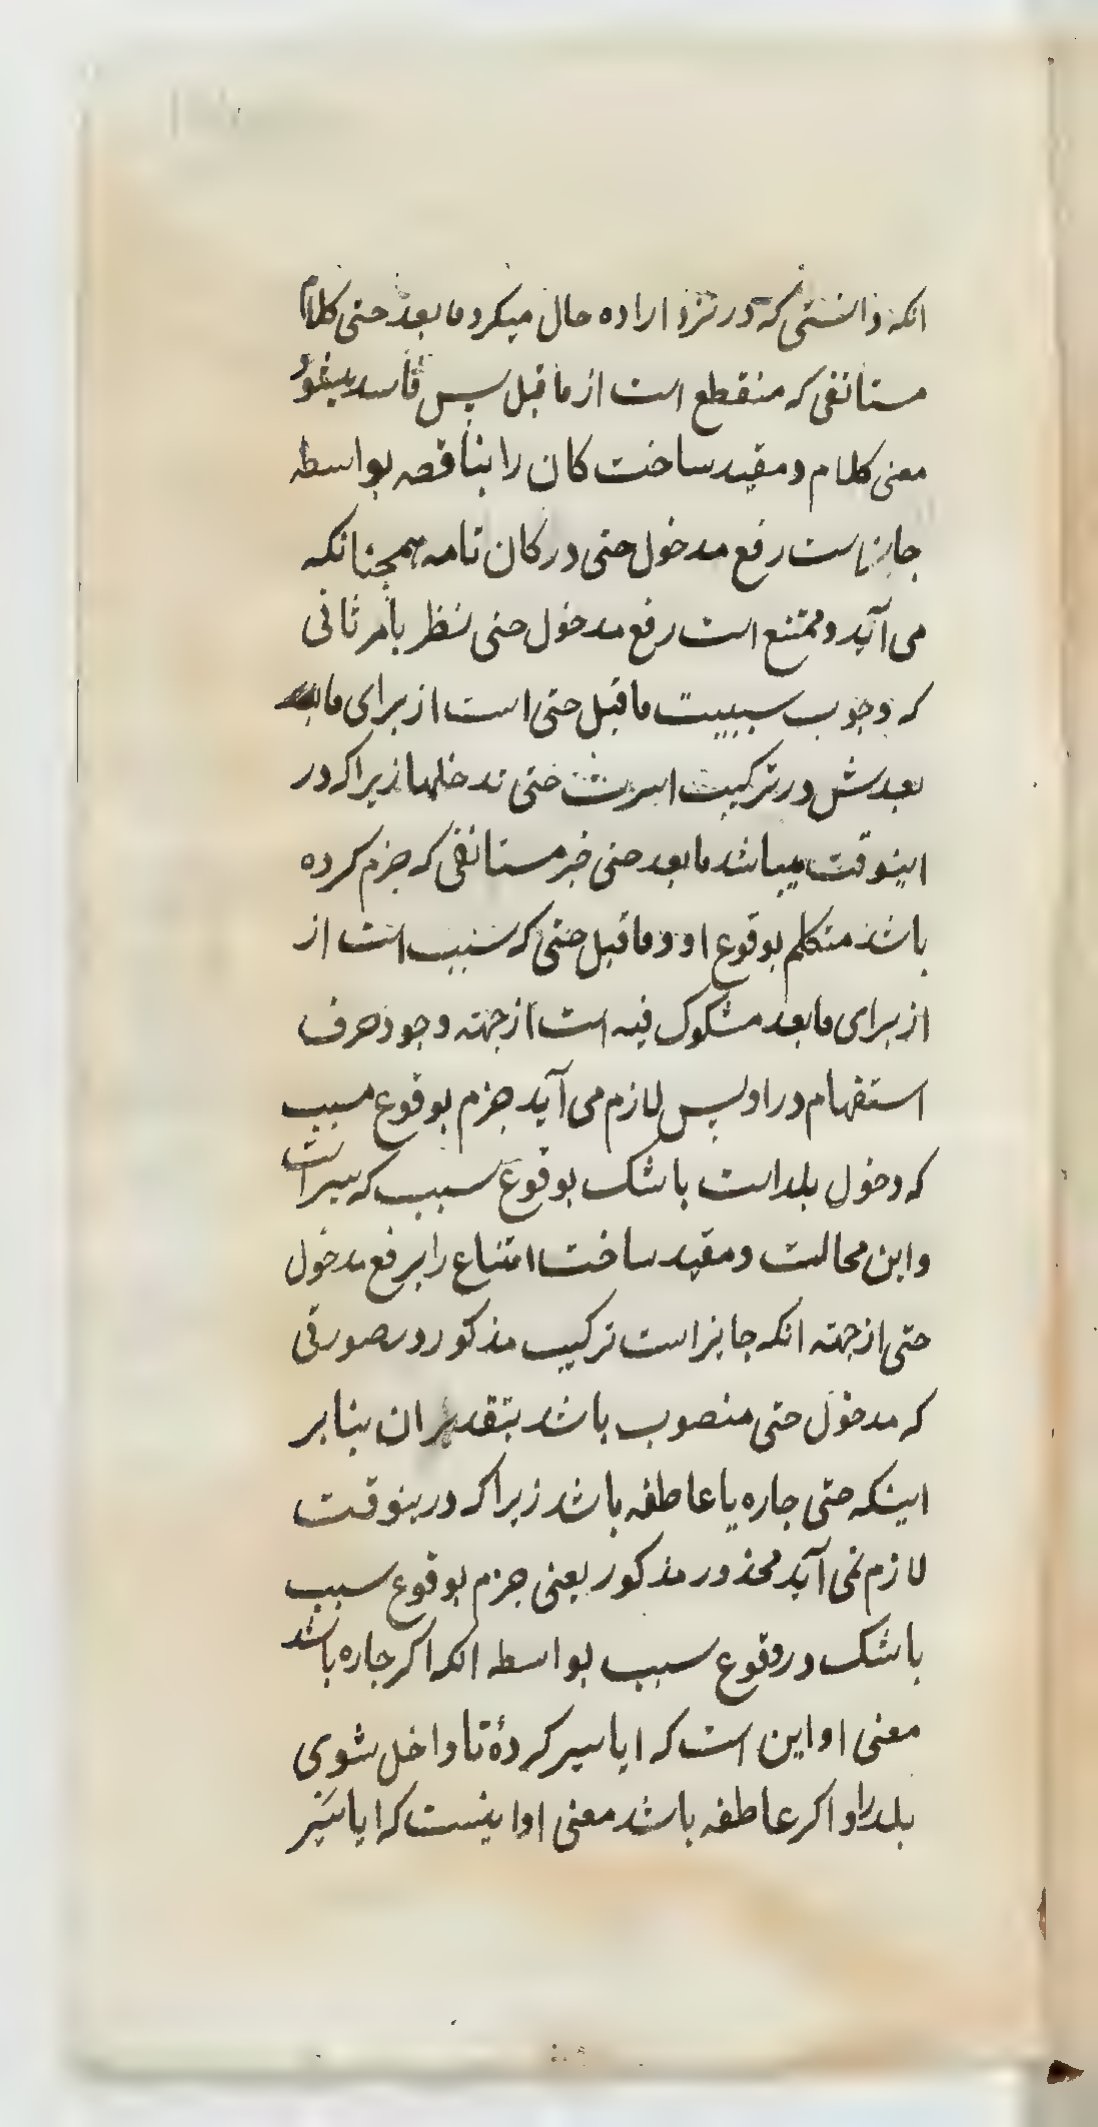 انکه دانستی که در نزد اراده حال میکرد مابعد حتی کلام
مستانفی که منقطع است از ماقبل پس فاسد میشود
معنی کلام و مقید ساخت کان را بناقصه بواسطه
جایز است رفع مدخول حتی در کان تامه همچنانکه
می آید و ممتنع است رفع مدخول حتی نظر بامر ثانی
که وجوب سببیت ماقبل حتی است از برای مابعد
بعدش در ترکیب اسرت حتی تدخلها زیرا که در
اینوقت میباشد مابعد حتی خبر مستانفی که جزم کرده
باشد متکلم بوقوع او و ماقبل حتی که سبب است از
از برای مابعد مشکوک فیه است از جهته وجود حرف
استفهام در او پس لازم می آید جزم بوقوع مسبب
که دخول بلد است باشک بوقوع سبب که سیر است
و این محالست و مقید ساخت امتناع را برفع مدخول
حتی از جهته انکه جایز است ترکیب مذکور در صورتی
که مدخول حتی منصوب باشد بتقدیر ان بنابر
اینکه حتی جاره یا عاطفه باشد زیرا که درینوقت
لازم نمی آید محذور مذکور یعنی جزم بوقوع سبب
باشک در وقوع سبب بواسطه انکه اکر جاره باشد
معنی او این است که ایا سیر کردهٔ تا داخل شوی
بلد را و اکر عاطفه باشد معنی او اینست که ایا سیر